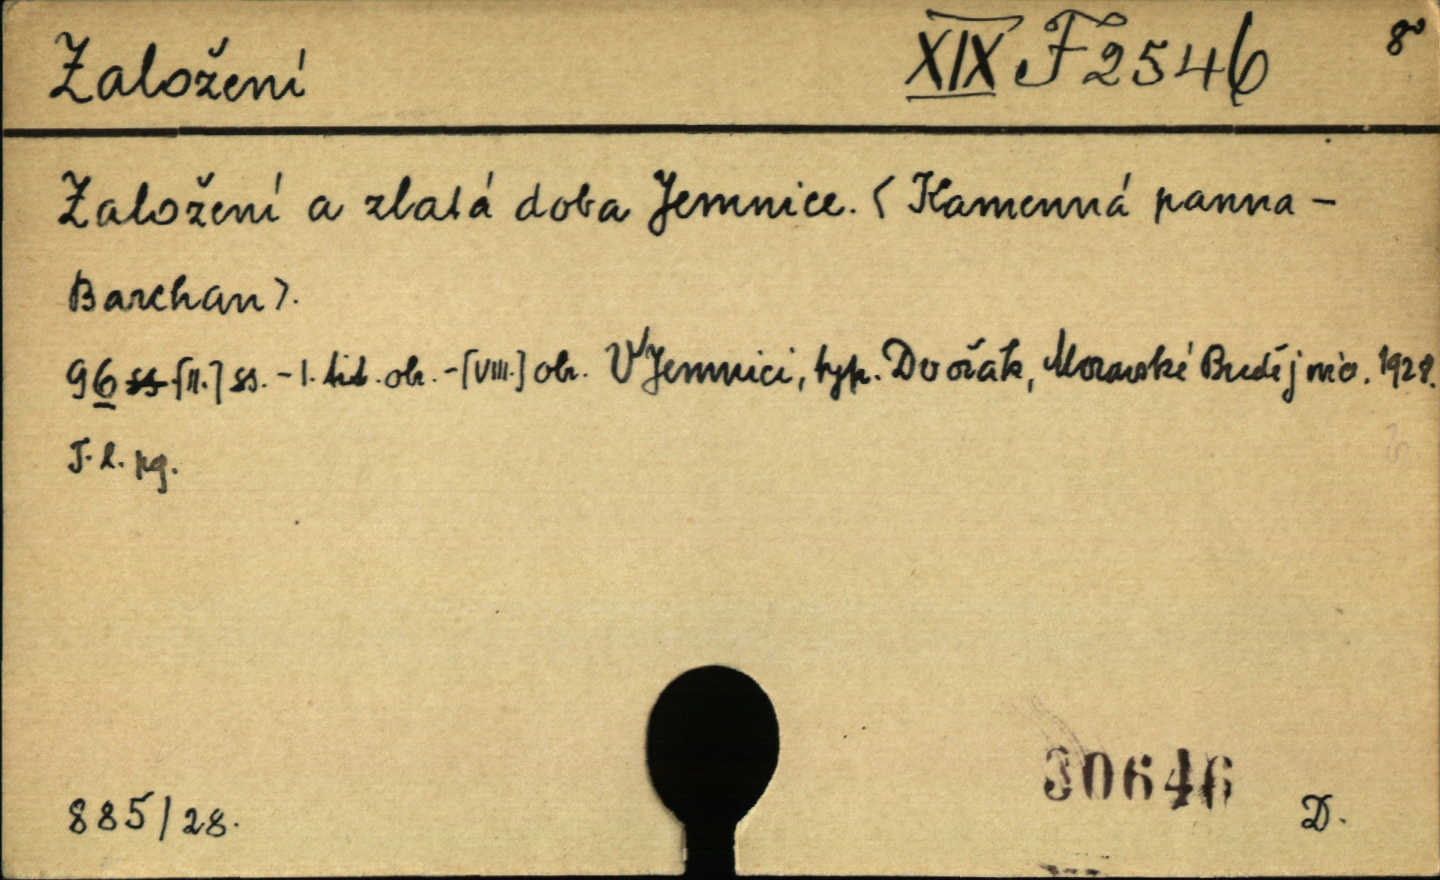 Založení XIX F 2546 8°
Založení a zlatá doba Jemnice. < Kamenná panna -
Barchan >.
96 ss [II.] ss. - I. tit. obr. - [VIII.] obr. V Jemnici, typ. Dvořák, Moravské Budějovice. 1928.
F. l. pg.
30646
885/28. D.